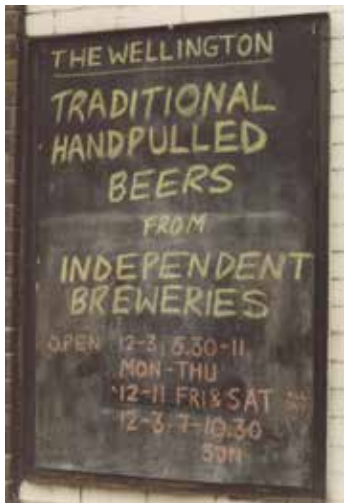 THE WELLINGTON
TRADITIONAL
HANDPULLED
BEERS
FROM
INDEPENDENT
BREWERIES
OPEN 12-3, 5.30-11
MON-THU
12-11 FRI & SAT
12-3, 7-10.30
SUN